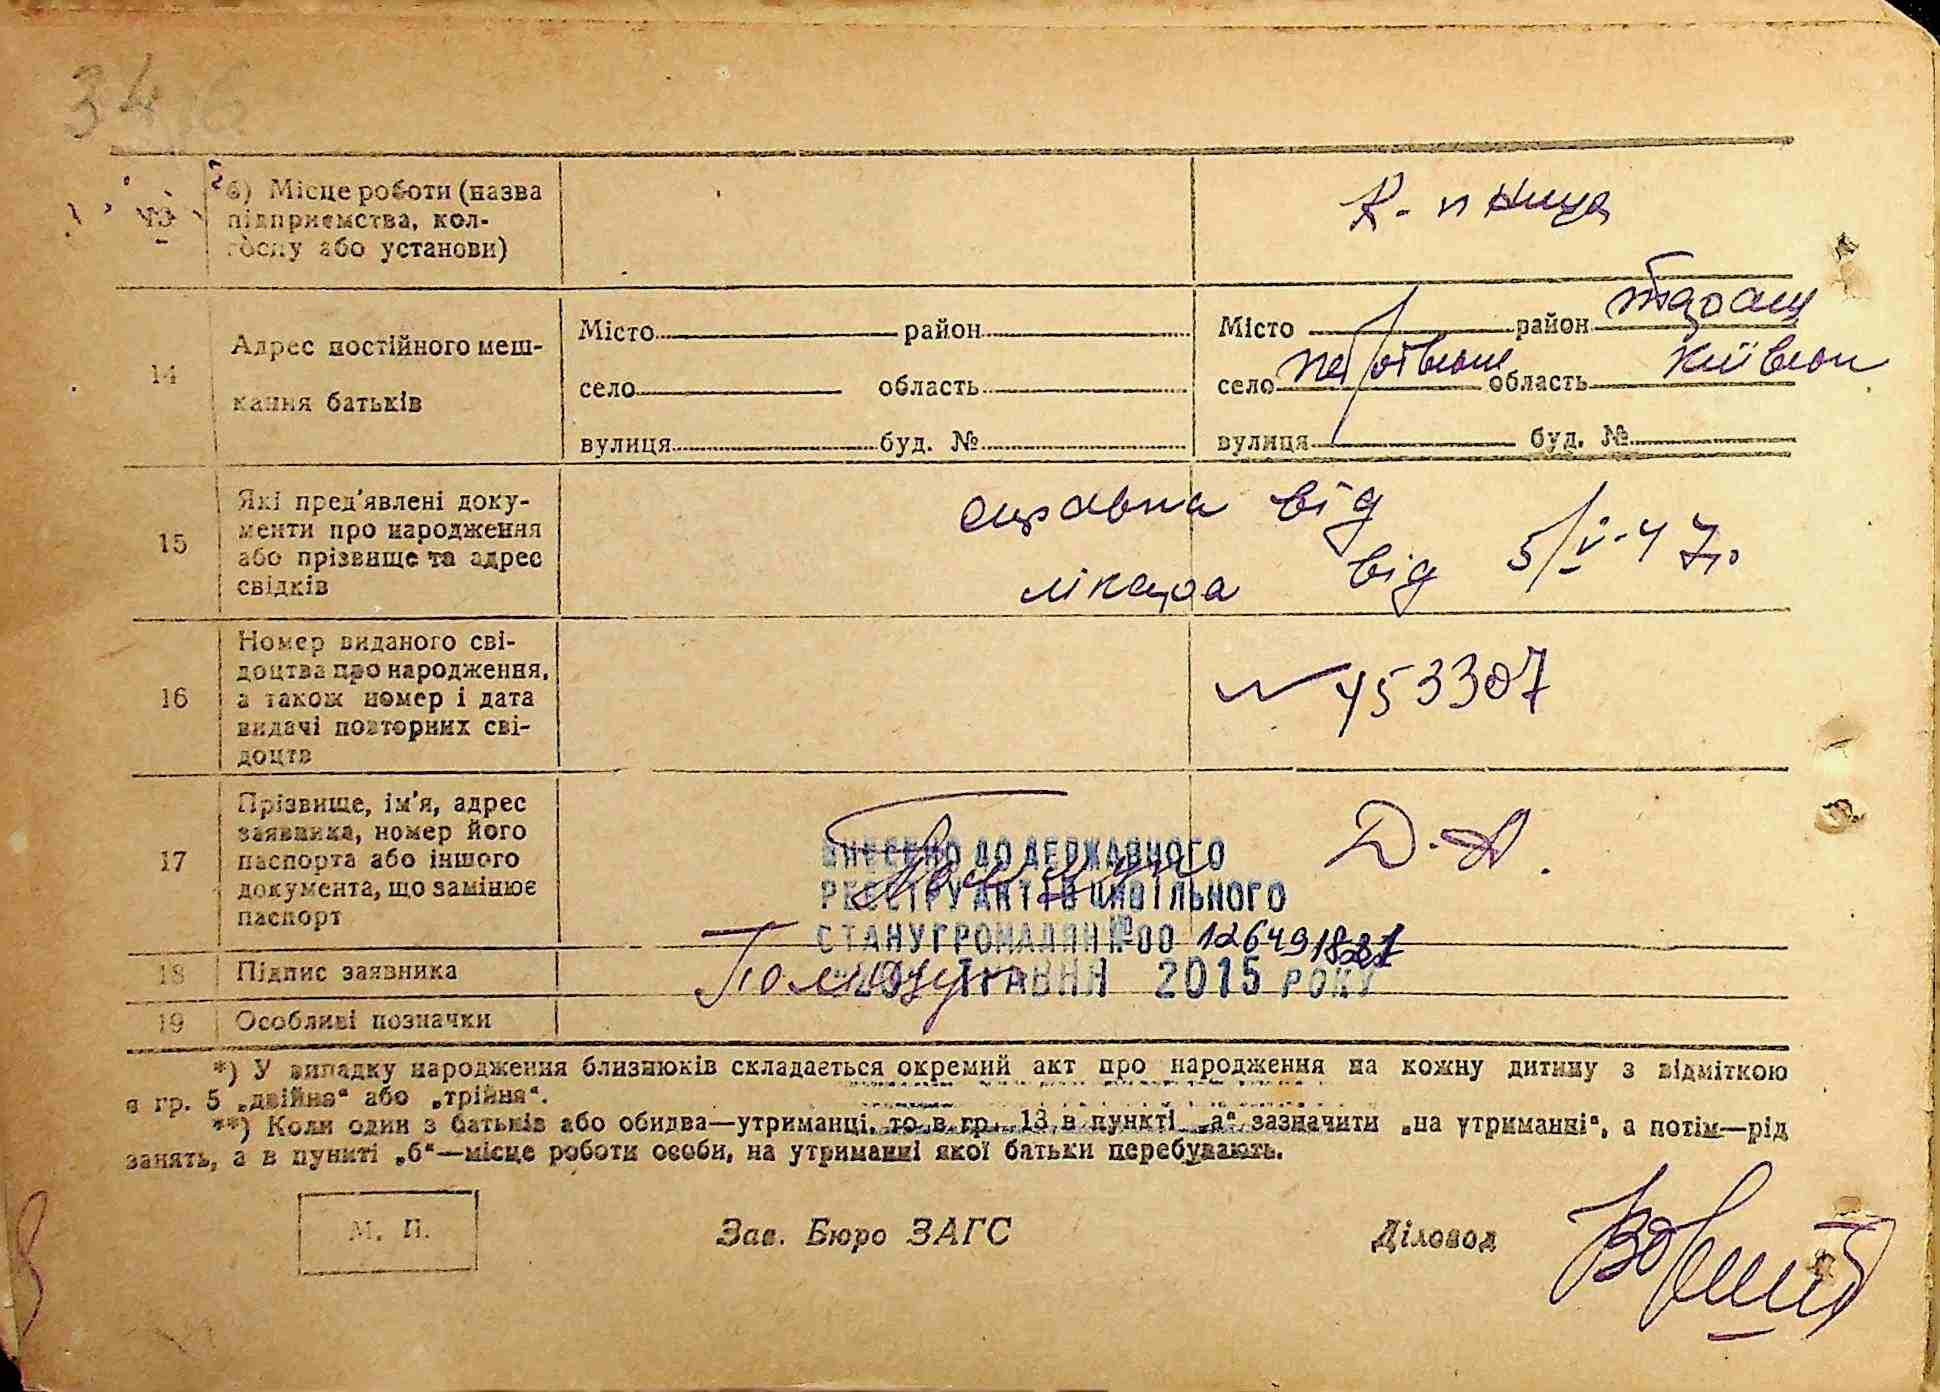 34
13
б) Місце роботи (назва
підприємства, кол-
госпу або установи)
14
Адрес постійного меш-
кання батьків
Місто район
село область
вулиця буд. №
Місто район Таращ
село область Київськ
вулиця буд. №
15
Які пред'явлені доку-
менти про народження
або прізвище та адрес
свідків
справка від
лікара від 5/V-47р
16
Номер виданого сві-
доцтва про народження,
а також номер і дата
видачі повторних сві-
доцтв
N 453307
17
Прізвище, ім'я, адрес
заявника, номер його
паспорта або іншого
документа, що замінює
паспорт
Д. А.
ВНЕСЕНО ДО ДЕРЖАВНОГО
РЕЄСТРУ АКТІВ ЦИВІЛЬНОГО
СТАНУ ГРОМАДЯН №00 126491821
ТРАВНЯ 2015 РОКУ
18
Підпис заявника
19
Особливі позначки
*) У випадку народження близнюків складається окремий акт про народження на кожну дитину з відміткою
в гр. 5 „двійня“ або „трійня“.
**) Коли один з батьків або обидва—утриманці, то в гр. 13 в пункті „а“ зазначити „на утриманні“, а потім—рід
занять, а в пункті „б“—місце роботи особи, на утриманні якої батьки перебувають.
М. П.
Зав. Бюро ЗАГС
Діловод